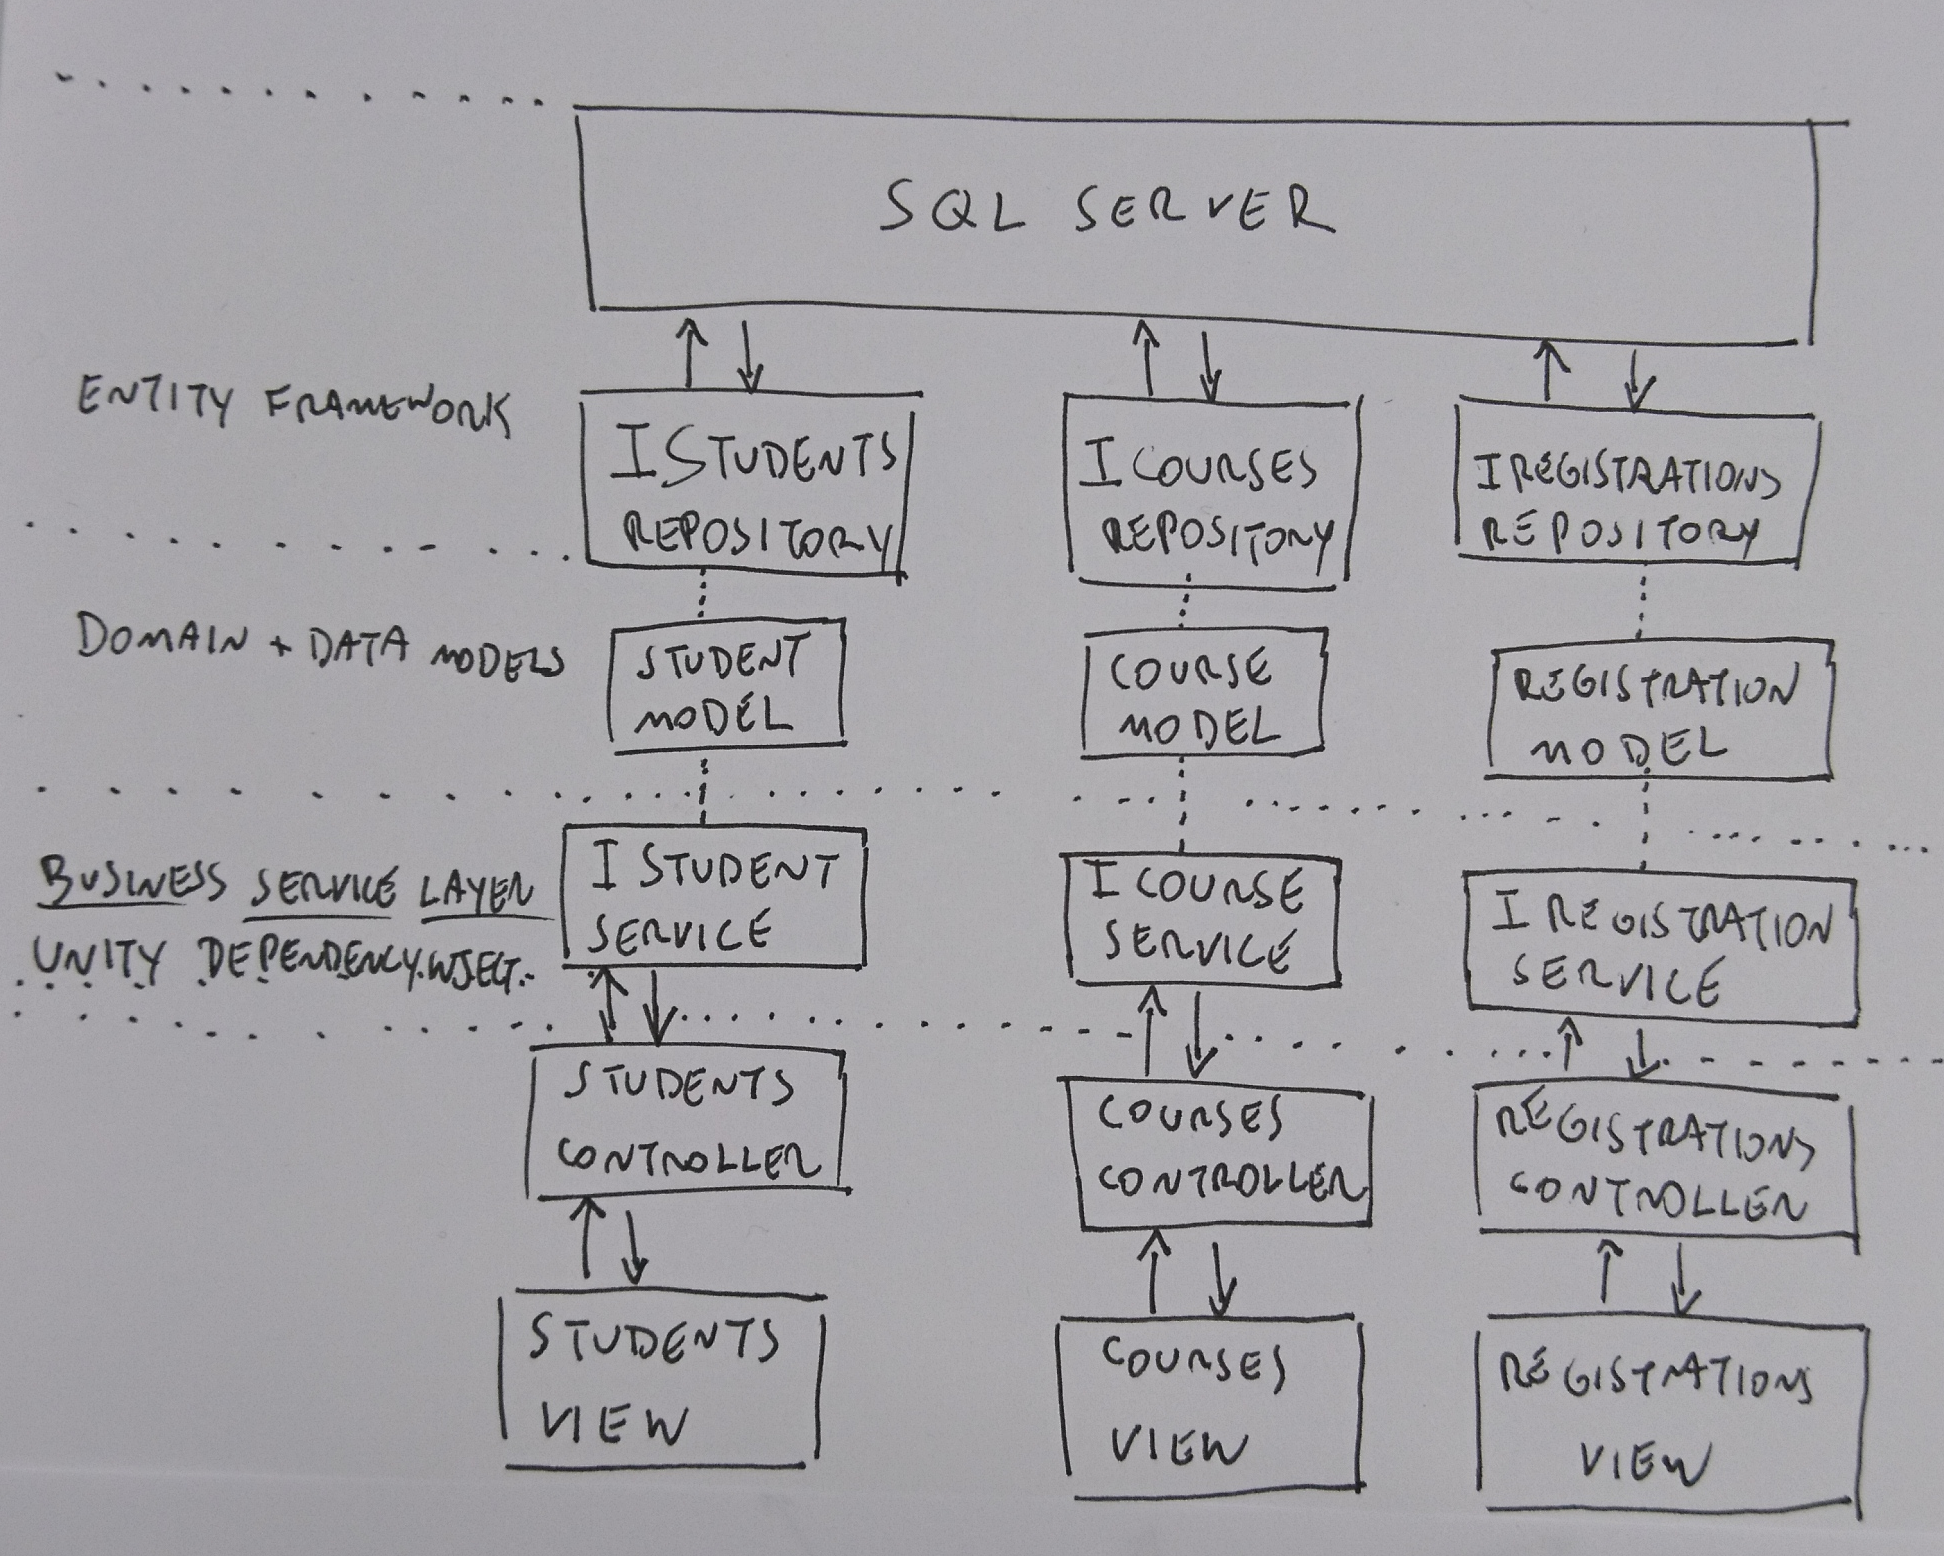 SQL SERVER
ENTITY FRAMEWORK
I STUDENTS
REPOSITORY
I COURSES
REPOSITORY
I REGISTRATIONS
REPOSITORY
DOMAIN + DATA MODELS
STUDENT
MODEL
COURSE
MODEL
REGISTRATION
MODEL
BUSINESS SERVICE LAYER
UNITY DEPENDENCY.INJECT.
I STUDENT
SERVICE
I COURSE
SERVICE
I REGISTRATION
SERVICE
STUDENTS
CONTROLLER
COURSES
CONTROLLER
REGISTRATIONS
CONTROLLER
STUDENTS
VIEW
COURSES
VIEW
REGISTRATIONS
VIEW